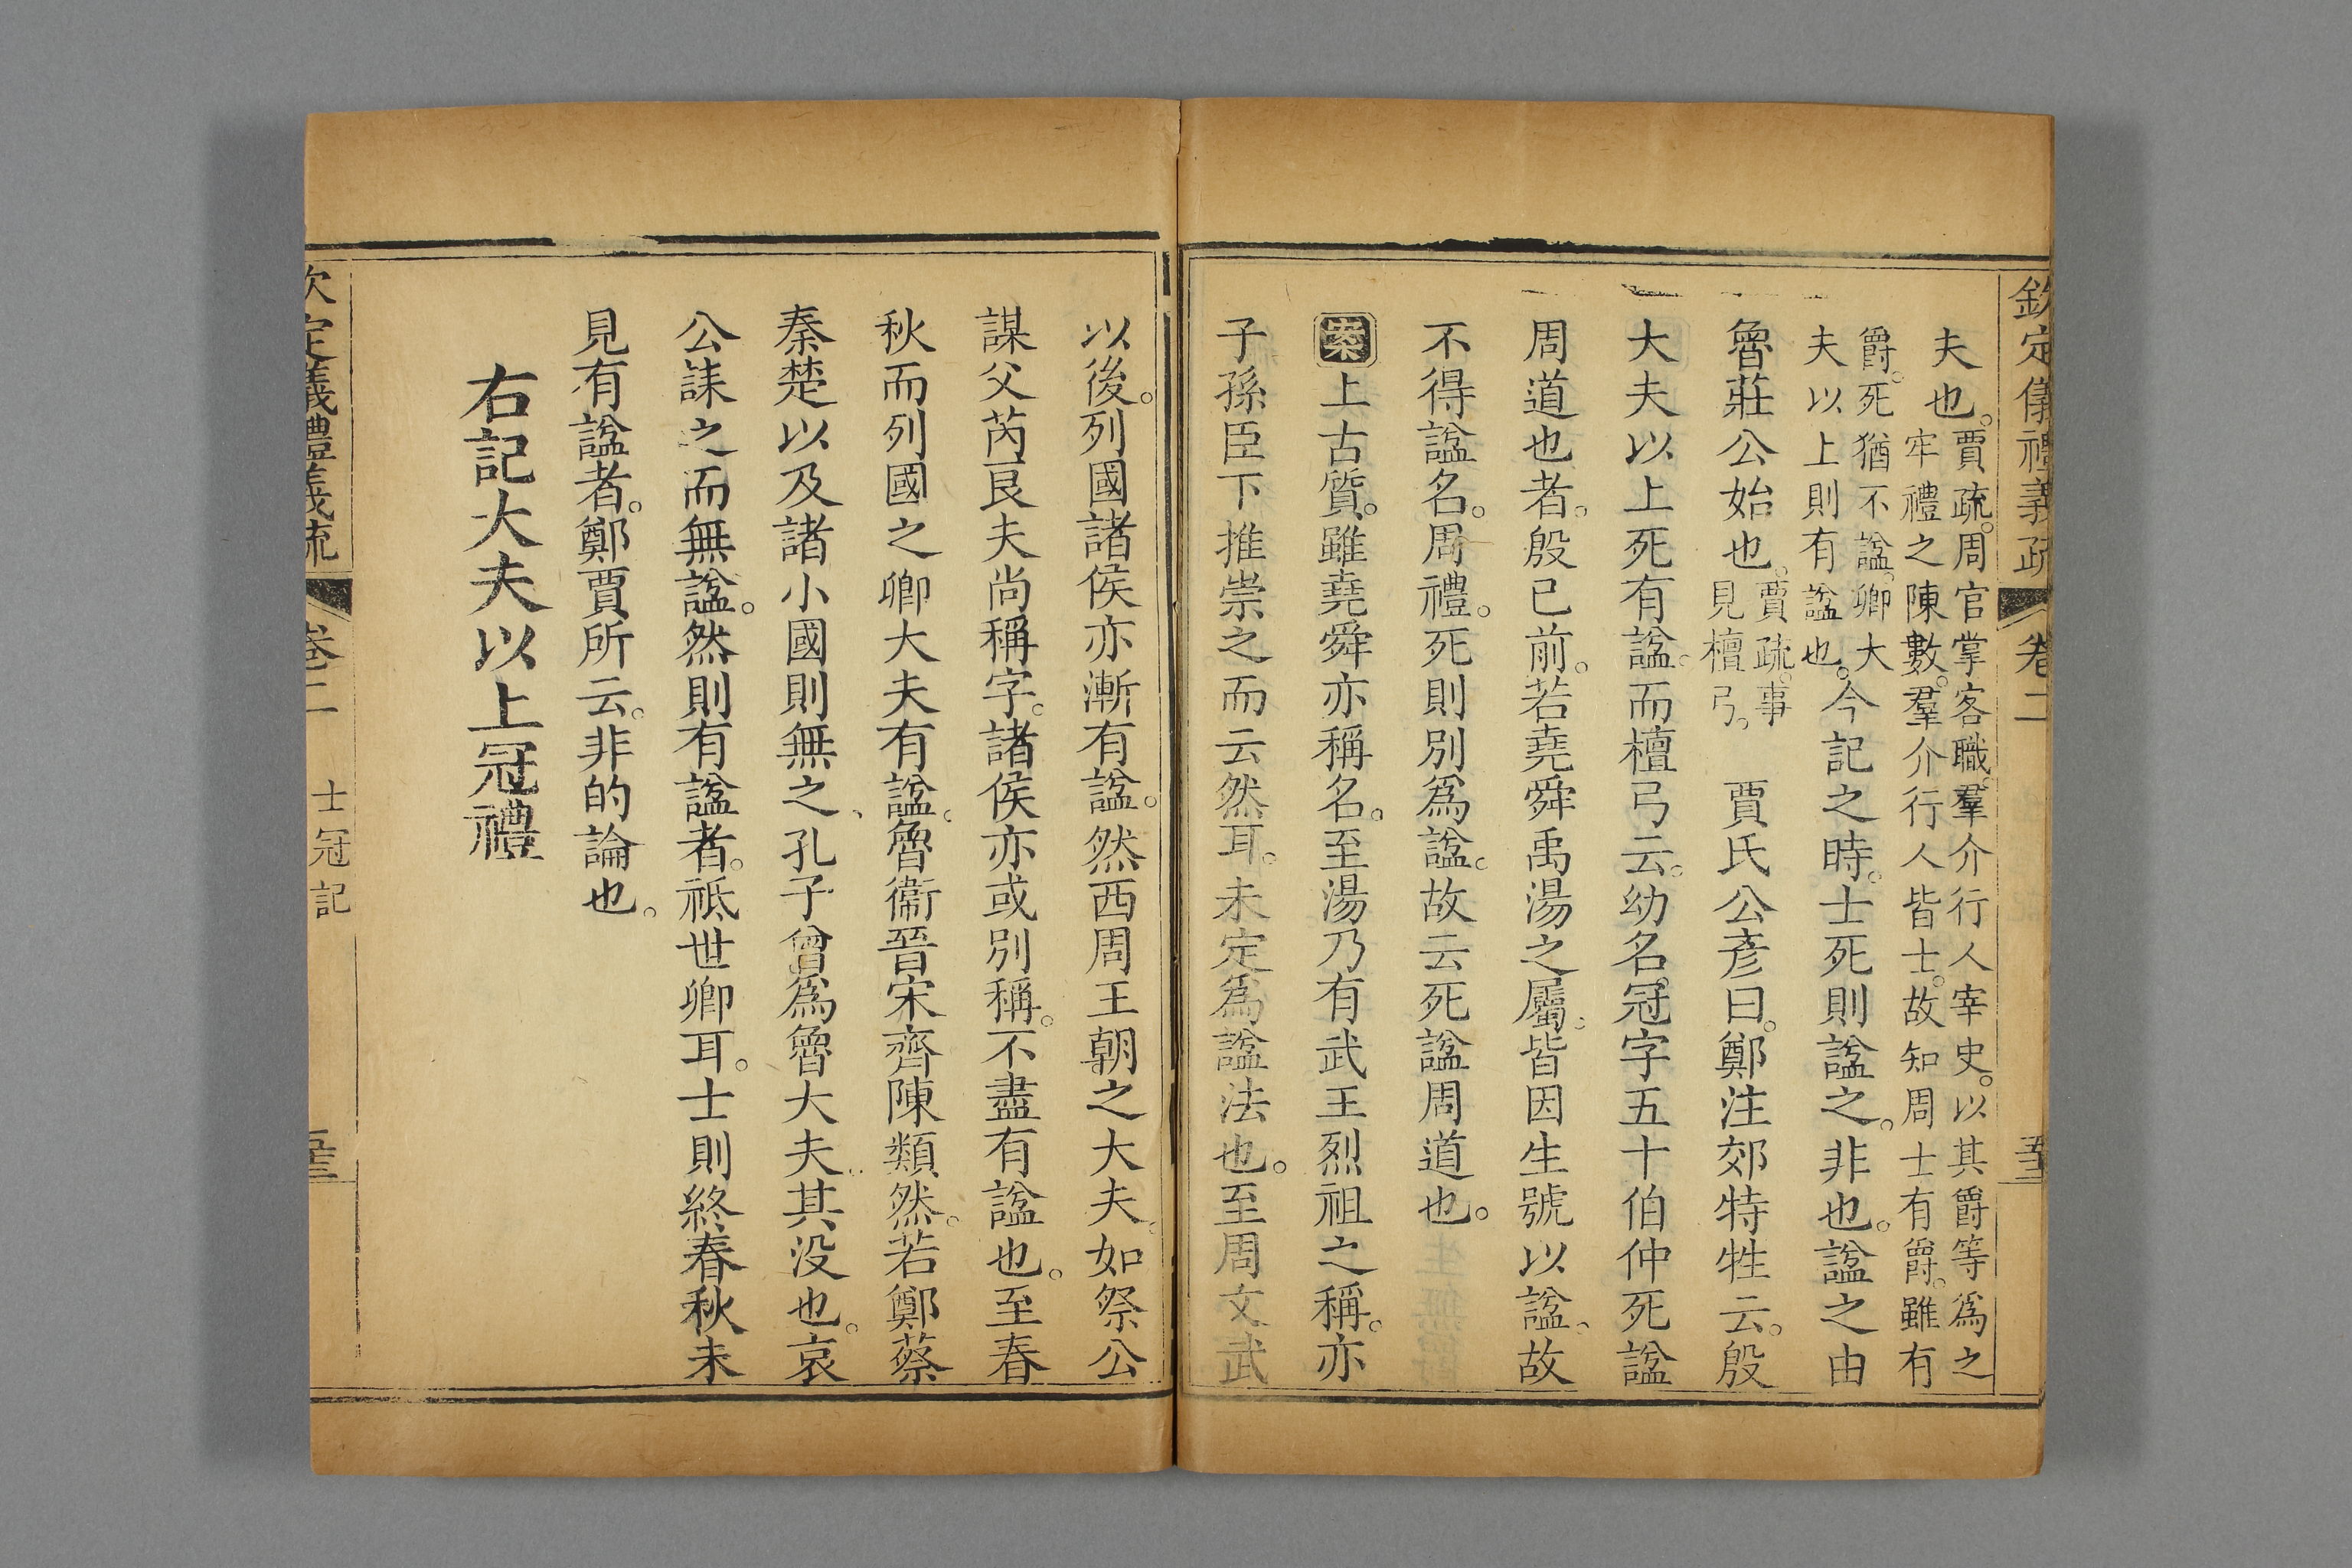 欽定儀禮義疏 卷二
夫也。賈疏。周官掌客職。羣介行人宰史。以其爵等爲之
牢禮之陳數。羣介行人皆士。故知周士有爵。雖有
爵。死猶不諡。卿大
夫以上則有諡也。今記之時。士死則諡之。非也。諡之由
魯莊公始也。賈疏。事
見檀弓。 賈氏公彥曰。鄭注郊特牲云。殷
大夫以上死有諡。而檀弓云。幼名。冠字五十伯仲死諡
周道也者。殷已前。若堯舜禹湯之屬。皆因生號以諡。故
不得諡名。周禮。死則別爲諡。故云死諡周道也。
案上古質。雖堯舜亦稱名。至湯乃有武王烈祖之稱。亦
子孫臣下推崇之而云然耳。未定爲諡法也。至周文武
以後。列國諸侯亦漸有諡。然西周王朝之大夫。如祭公
謀父芮良夫尚稱字。諸侯亦或別稱。不盡有諡也。至春
秋而列國之卿大夫有諡。魯衞晉宋齊陳類然。若鄭蔡
秦楚以及諸小國則無之、孔子曾爲魯大夫。其没也。哀
公誄之而無諡。然則有諡者。祗世卿耳。士則終春秋未
見有諡者。鄭賈所云。非的論也。
右記大夫以上冠禮
定義禮義疏 卷二 士冠記